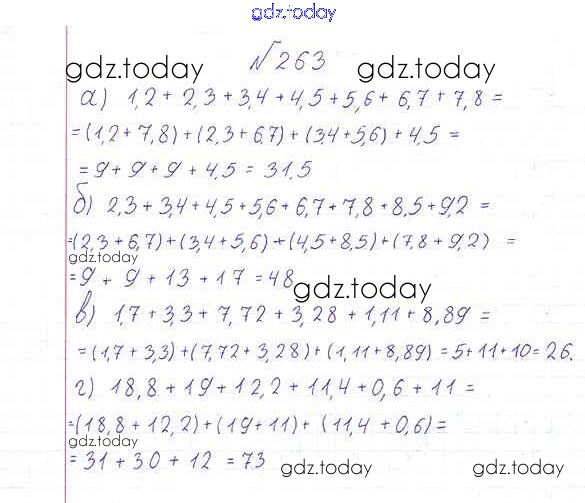 gdz.today
№263
gdz.today gdz.today
а) 1,2 + 2,3 + 3,4 + 4,5 + 5,6 + 6,7 + 7,8 =
= (1,2 + 7,8) + (2,3 + 6,7) + (3,4 + 5,6) + 4,5 =
= 9 + 9 + 9 + 4,5 = 31,5
б) 2,3 + 3,4 + 4,5 + 5,6 + 6,7 + 7,8 + 8,5 + 9,2 =
= (2,3 + 6,7) + (3,4 + 5,6) + (4,5 + 8,5) + (7,8 + 9,2) =
gdz.today
= 9 + 9 + 13 + 17 = 48
gdz.today
в) 1,7 + 3,3 + 7,72 + 3,28 + 1,11 + 8,89 =
= (1,7 + 3,3) + (7,72 + 3,28) + (1,11 + 8,89) = 5 + 11 + 10 = 26.
г) 18,8 + 19 + 12,2 + 11,4 + 0,6 + 11 =
= (18,8 + 12,2) + (19 + 11) + (11,4 + 0,6) =
gdz.today
= 31 + 30 + 12 = 73
gdz.today gdz.today